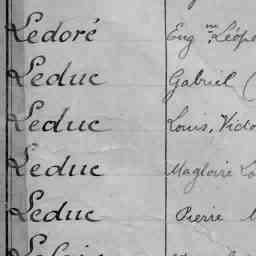 Ledoré Eug.ne Léopo
Leduc Gabriel (
Leduc Louis, Victo
Leduc Magloire Lo
Leduc Pierre